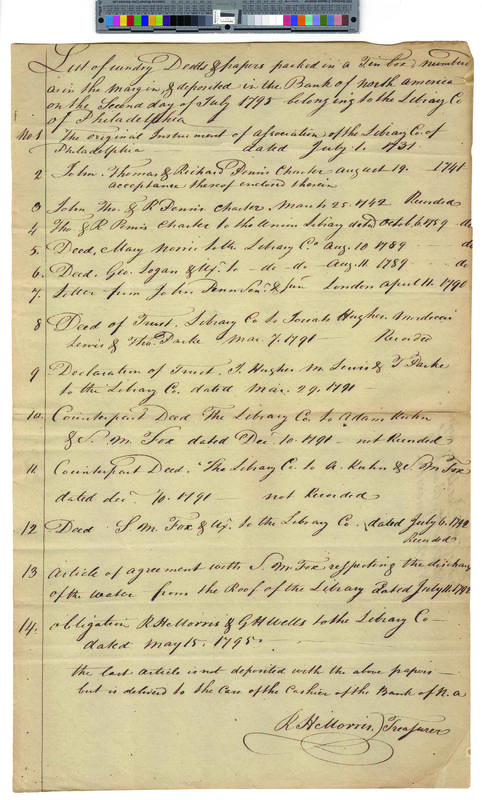 List of sundry Deeds & papers packed in a Tin Box numbered
as in the margin & deposited in the Bank of north america
on the Second day of July 1795 belonging to the Library Co
of Philadelphia
No 1 The original Instrument of Association of the Library Co. of
Philadelphia dated July 1. 1731
2 John, Thomas & Richard Penns Charter august 19. 1746
acceptance thereof endorsed therein
3 John Tho. & R Penns Charter March 25. 1742 Recorded
4 Tho & R Penns Charter to the Union Library dated Octob. 6. 1759 do
5. Deed, Mary Norris to the Library Co. Aug. 10 1789 do
6. Deed. Geo. Logan & Ux. to do do Aug. 11 1789 do
7. Letter from John Penn Senr. & Jun London April 11. 1790
8 Deed of Trust. Library Co to Josiah Hughes. Mordecai
Lewis & Tho. Parke Mar. 7. 1791 Recorded
9 Declaration of Trust. J. Hughes M Lewis & T Parke
to the Library Co. dated Mar. 29. 1791
10. Counterpart Deed The Library Co. to Adam Kuhn
& S. M. Fox dated Decr. 10. 1791 - not Recorded
11. Counterpart Deed. The Library Co. to A. Kuhn & S M Fox
dated decr. 10. 1791 - not Recorded
12 Deed S. M. Fox & Ux. to the Library Co. dated July 6. 1792
Recorded
13 Article of agreement with S. M. Fox respecting the discharge
of the water from the Roof of the Library dated July 11. 1792
14. obligation R H Morris & G H Wells to the Library Co
dated may 15. 1795.
the last article is not deposited with the above papers
but is delivd to the Care of the Cashier of the Bank of N. a
R H Morris, Treasurer